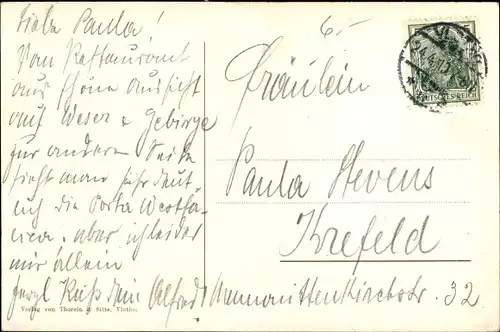 Liebe Paula!
Vom Restaurant
aus schöne Aussicht
auf Weser & Gebirge
zur anderen Seite
sieht man sehr deut-
lich die Porta Westfa-
lica, aber ich leider
mir allein
herzl Kuß Dein Alfred
Verlag von Thorein & Sitte, Vlotho.
6.-
Fräulein
Paula Stevens
Krefeld
Mennonittenkirchstr. 32
DEUTSCHES REICH